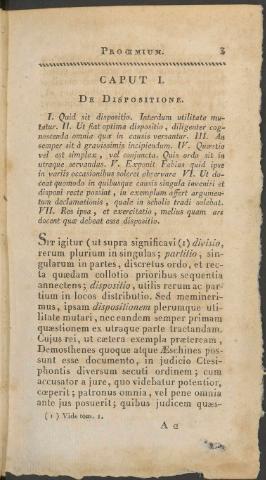 PROŒMIUM. 3
CAPUT I.
DE DISPOSITIONE.
I. Quid sit dispositio. Interdum utilitate mu-
tatur. II. Ut fiat optima dispositio, diligenter cog-
noscenda omnia quæ in causis versantur. III. An
semper sit à gravissimis incipiendum. IV. Quæstio
vel est simplex, vel conjuncta. Quis ordo sit in
utraque servandus. V. Exponit Fabius quid ipse
in variis occasionibus solerei observare VI. Ut do-
ceat quomodo in quibusque causis singula inveniri et
disponi recte possint, in exemplum affert argumen-
tum declamationis, quale in scholis tradi solebat.
VII. Res ipsa, et exercitatio, melius quam ars
docent quæ debeat esse dispositio.
SIT igitur (ut supra significavi (1) divisio,
rerum plurium in singulas; partitio, sin-
gularum in partes, discretus ordo, et rec-
ta quædam collotio prioribus sequentia
annectens; dispositio, utilis rerum ac par-
tium in locos distributio. Sed memineri-
mus, ipsam dispositionem plerumque uti-
litate mutari, nec eendem semper primam
quæstionem ex utraque parte tractandam.
Cujus rei, ut cætera exempla præteream,
Demosthenes quoque atque Æschines pos-
sunt esse documento, in judicio Ctesi-
phontis diversum secuti ordinem; cum
accusator a jure, quo videbatur potentior,
cœperit; patronus omnia, vel pene omnia
ante jus posuerit; quibus judicem quæs-
(1) Vide tom. 1.
A 2